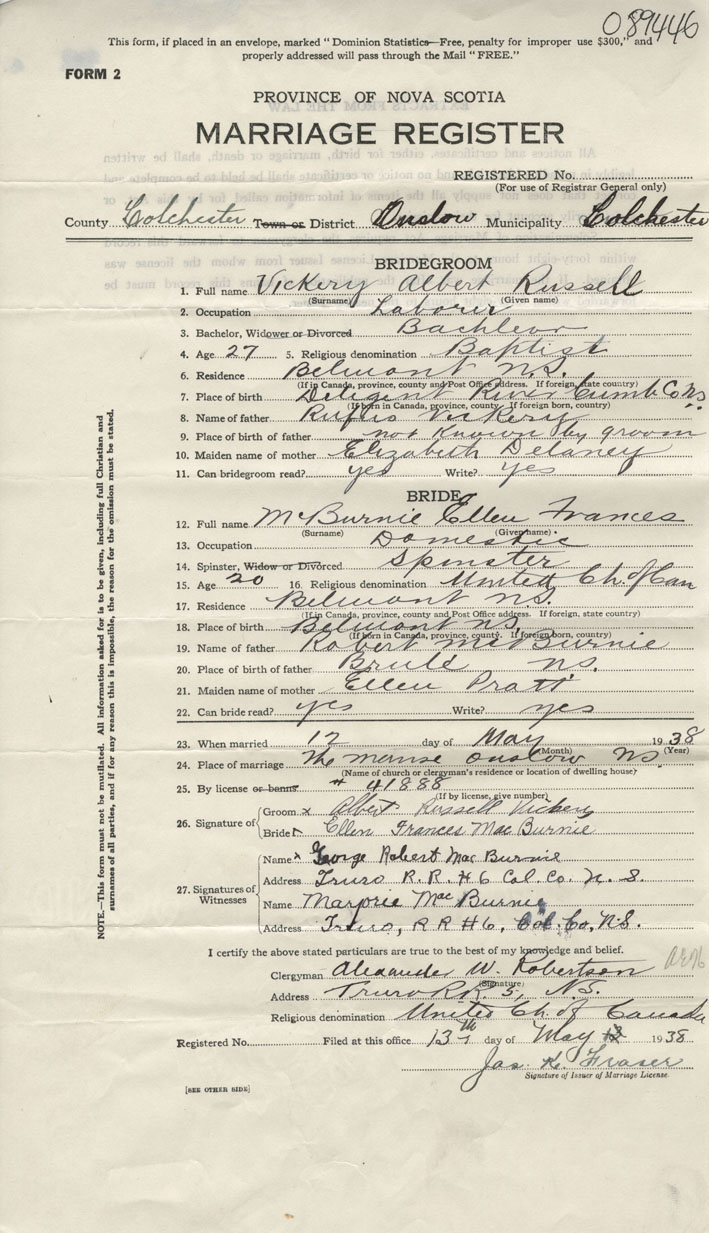 089446
This form, if placed in an envelope, marked "Dominion Statistics—Free, penalty for improper use $300," and
properly addressed will pass through the Mail "FREE."
FORM 2
PROVINCE OF NOVA SCOTIA
MARRIAGE REGISTER
REGISTERED No.
(For use of Registrar General only)
County Colchester Town or District Onslow Municipality Colchester
BRIDEGROOM
1. Full name Vickery Albert Russell
(Surname) (Given name)
2. Occupation Laborer
3. Bachelor, Widower or Divorced Bachleor
4. Age 27 5. Religious denomination Baptist
6. Residence Belmont N.S.
(If in Canada, province, county and Post Office address. If foreign, state country)
7. Place of birth Diligent River Cumb Co NS
(If born in Canada, province, county. If foreign born, country)
8. Name of father Vickery
9. Place of birth of father not known by groom
10. Maiden name of mother Elizabeth Delaney
11. Can bridegroom read? yes Write? yes
BRIDE
12. Full name McBurnie Ellen Frances
(Surname) (Given name)
13. Occupation Domestic
14. Spinster, Widow or Divorced Spinster
15. Age 20 16. Religious denomination United Ch. of Can
17. Residence Belmont N.S.
(If in Canada, province, county and Post Office address. If foreign, state country)
18. Place of birth Belmont NS.
(If born in Canada, province, county. If foreign born, country)
19. Name of father Robert McBurnie
20. Place of birth of father Brule NS.
21. Maiden name of mother Ellen Pratt
22. Can bride read? yes Write? yes
23. When married 12 day of May 1938
(Month) (Year)
24. Place of marriage The manse Onslow NS
(Name of church or clergyman's residence or location of dwelling house)
25. By license or banns # 41888
(If by license, give number)
26. Signature of
Groom x Albert Russell Vickery
Bride Ellen Frances MacBurnie
27. Signatures of Witnesses
Name x George Robert MacBurnie
Address Truro R.R. #6 Col. Co. N.S.
Name Marjorie MacBurnie
Address Truro, RR #6, Col. Co, N.S.
I certify the above stated particulars are true to the best of my knowledge and belief.
Clergyman Alexander W. Robertson
(Signature)
Address Truro RR 5, N.S.
Religious denomination United Ch. of Canada
Registered No. Filed at this office 13th day of May 1938
Jas. K. Fraser
Signature of Issuer of Marriage License
[SEE OTHER SIDE]
NOTE.—This form must not be mutilated. All information asked for is to be given, including full Christian and
surnames of all parties, and if for any reason this is impossible, the reason for the omission must be stated.